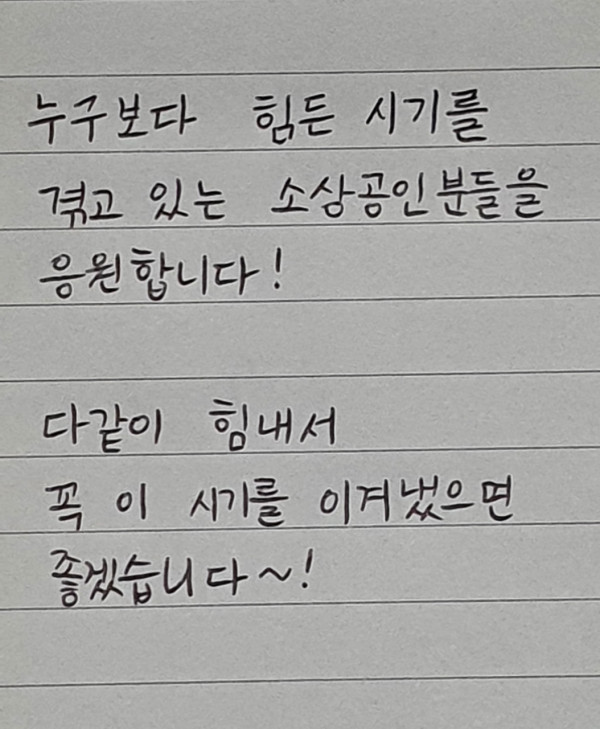 누구보다 힘든 시기를
겪고 있는 소상공인분들을
응원합니다!
다같이 힘내서
꼭 이 시기를 이겨냈으면
좋겠습니다~!